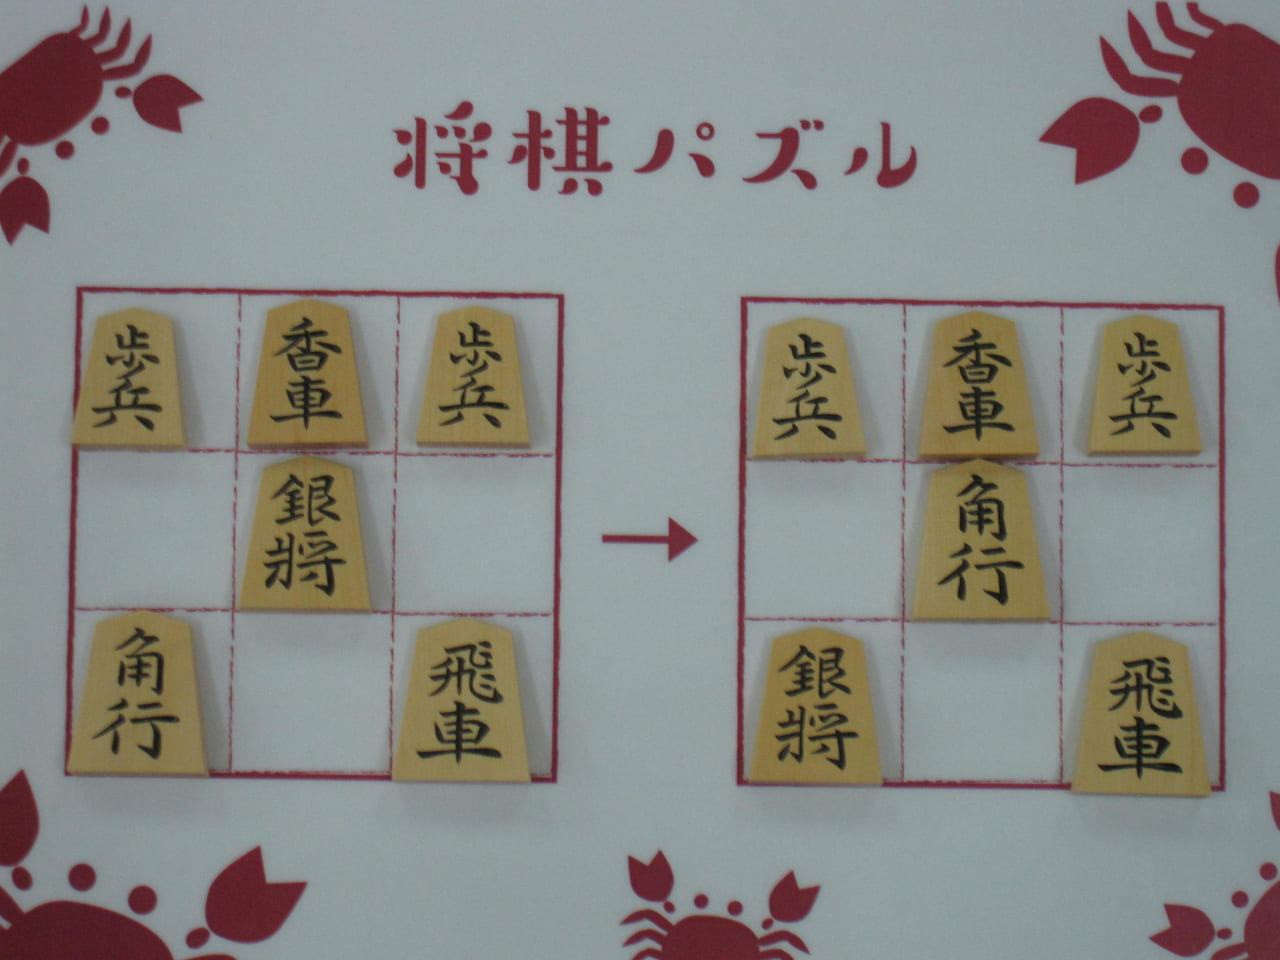 将棋パズル
歩兵 香車 歩兵
銀将
角行 飛車
歩兵 香車 歩兵
角行
銀将 飛車